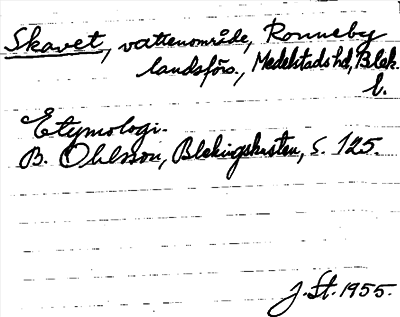 Skavet, vattenområde, Ronneby
landsförs., Medelstads hd, Blek.
l.
Etymologi.
B. Ohlsson, Blekingskusten, s. 125.
J. St. 1955.